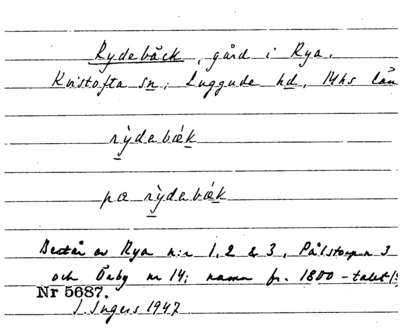 Rydebäck, gård i Rya,
Kvistofta sn; Luggude hd, Mhs län
rỳdebæ̀k
pæ rỳdebæ̀k
Består av Rya n:r 1, 2 & 3, Pålstorp n 3
och Örby nr 14; namn fr. 1800-talet
Nr 5687.
J. Ingers 1947.